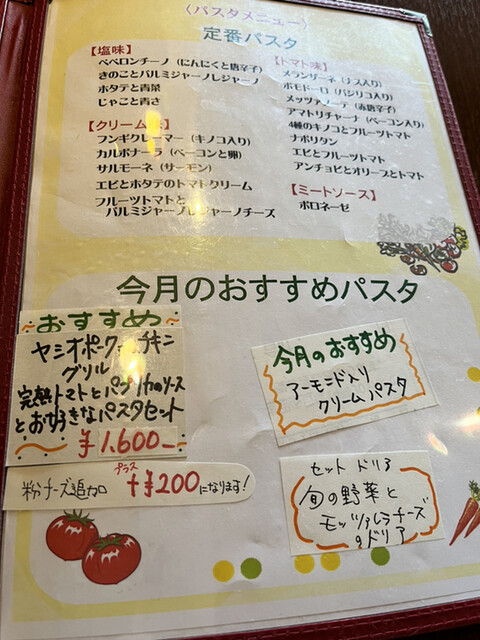 〈パスタメニュー〉
定番パスタ
【塩味】
ペペロンチーノ (にんにくと唐辛子)
きのことパルミジャーノレジャーノ
ホタテと青菜
じゃこと青さ
【クリーム味】
フンギクレーマー (キノコ入り)
カルボナーラ (ベーコンと卵)
サルモーネ (サーモン)
エビとホタテのトマトクリーム
フルーツトマトと
パルミジャーノレジャーノチーズ
【トマト味】
メランザーネ (ナス入り)
ポモドーロ (バジリコ入り)
メッツァノーテ (赤唐辛子)
アマトリチャーナ (ベーコン入り)
4種のキノコとフルーツトマト
ナポリタン
エビとフルーツトマト
アンチョビとオリーブとトマト
【ミートソース】
ボロネーゼ
今月のおすすめパスタ
おすすめ
ヤシオポーク チキン
グリル
完熟トマトとパプリカのソース
とお好きなパスタセット
¥1.600-
粉チーズ追加 プラス +¥200になります!
今月のおすすめ
アーモンド入り
クリームパスタ
セット ドリア
旬の野菜と
モッツァレラチーズ
のドリア